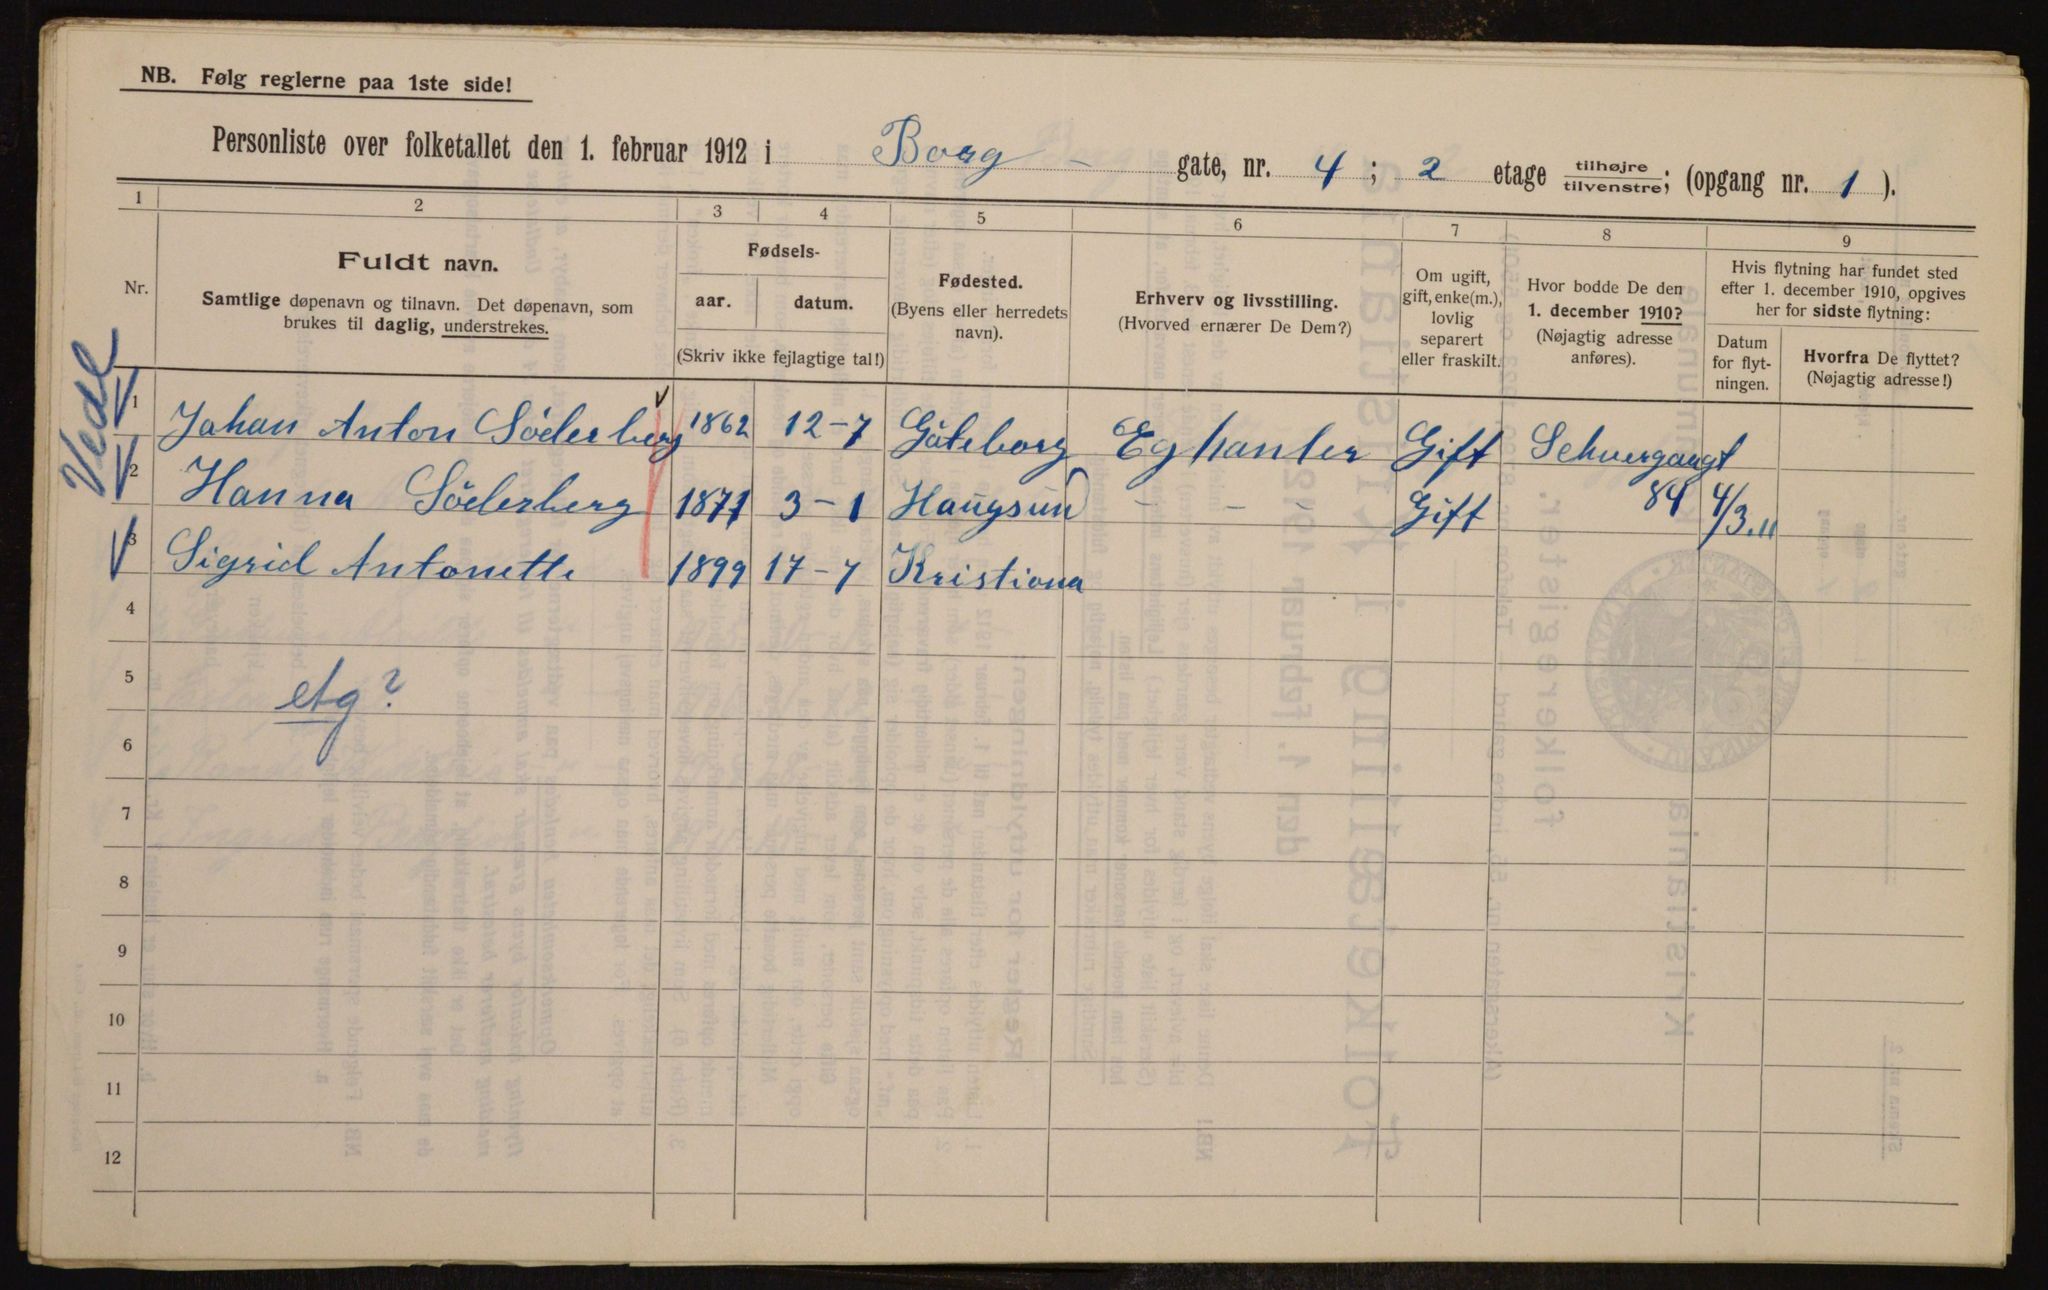 NB. Følg reglerne paa 1ste side!
Personliste over folketallet den 1. februar 1912 i Borg - gate, nr. 4 ; 2 etage tilhøjre/tilvenstre; (opgang nr. 1 ).
1 2 3 4 5 6 7 8 9
Nr.
Fuldt navn.
Samtlige døpenavn og tilnavn. Det døpenavn, som
brukes til daglig, understrekes.
Fødsels-
aar. datum.
(Skriv ikke fejlagtige tal!)
Fødested.
(Byens eller herredets
navn).
Erhverv og livsstilling.
(Hvorved ernærer De Dem?)
Om ugift,
gift, enke(m.),
lovlig
separert
eller fraskilt.
Hvor bodde De den
1. december 1910?
(Nøjagtig adresse
anføres).
Hvis flytning har fundet sted
efter 1. december 1910, opgives
her for sidste flytning:
Datum
for flyt-
ningen.
Hvorfra De flyttet?
(Nøjagtig adresse!)
Vedl
1 Johan Anton Söderberg 1862 12-7 Göteborg Eghanler Gift Schwergangt
2 Hanna Söderberg 1871 3-1 Haugsund - - - Gift 84 4/3.11
3 Sigrid Antonette 1899 17-7 Kristiona
4
5
etg?
6
7
8
9
10
11
12